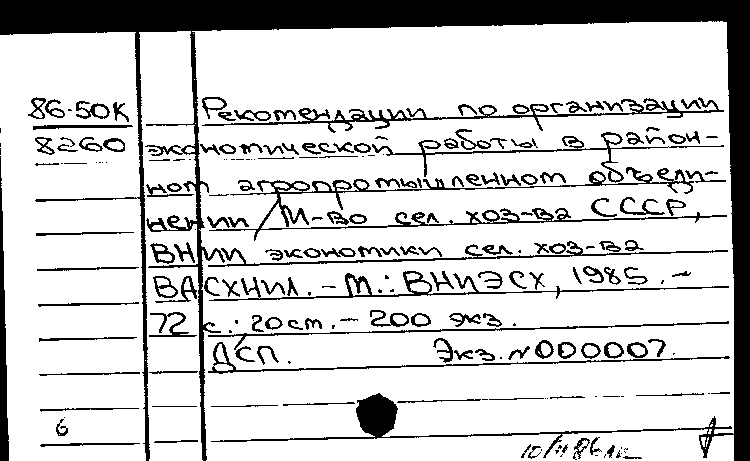 86-50К Рекомендации по организации
8260 экономической работы в район-
ном агропромышленном объеди-
нении / М-во сел. хоз-ва СССР,
ВНИИ экономики сел. хоз-ва
ВАСХНИЛ. - М.: ВНИЭСХ, 1985. -
72 с.: 20 см. - 200 экз.
ДСП. Экз. N 000007.
6